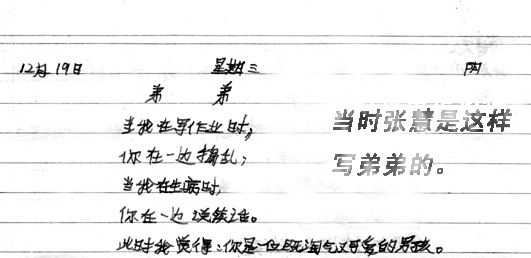 12月19日 星期三 阴
弟 弟
当我在写作业时，
你在一边捣乱；
当我在生病时，
你在一边逆续谁。
此时我觉得：你是一位既淘气又可爱的男孩。
当时张慧是这样
写弟弟的。